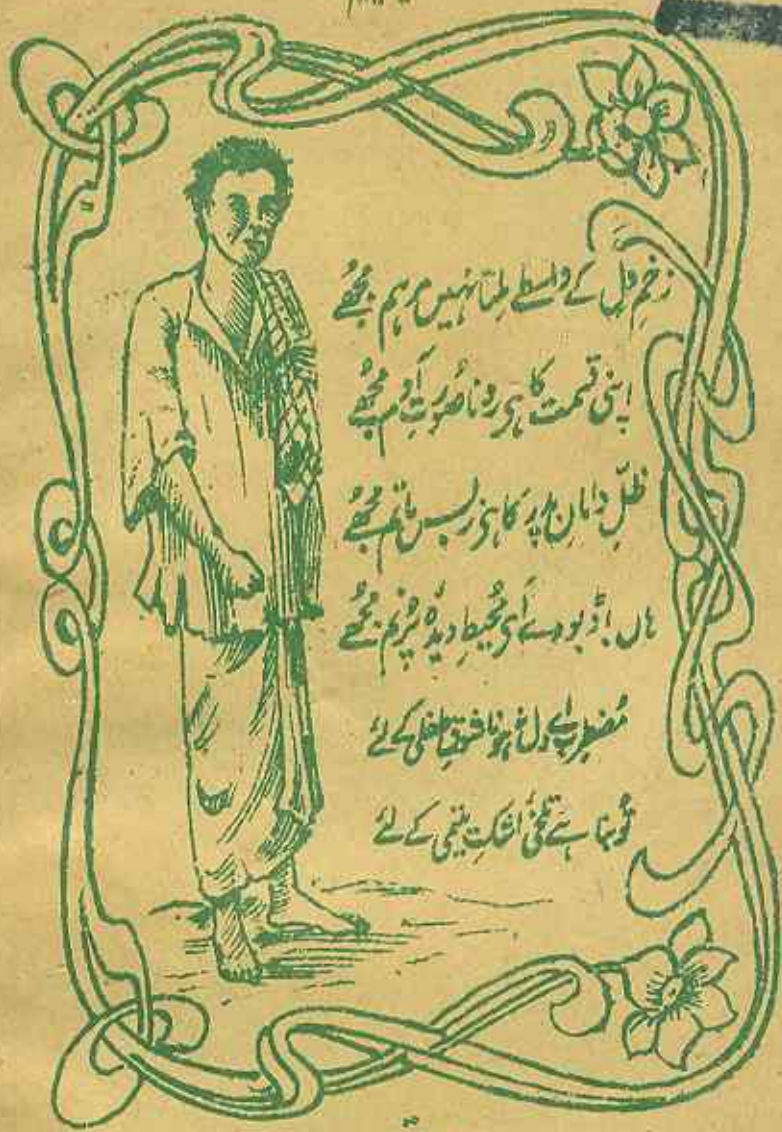 زخمِ دل کے واسطے ملتا نہیں مرہم مجھے
اپنی قسمت کا ہے رونا صُورتِ آدم مجھے
ظلِّ دامانِ پدر کا ہے زبس ماتم مجھے
ہاں ڈبو دے اَے مُحیطِ دیدۂ پُرنم مجھے
مُضطرب اے دل نہ ہونا ذوقِ طفلی کے لئے
تُو بنا ہے تلخئ اشکِ یتیمی کے لئے